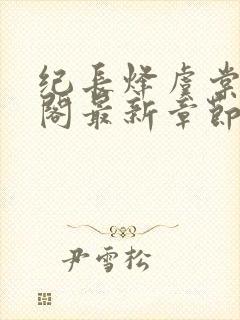 纪长烽虞棠
阁最新章节
尹雪松